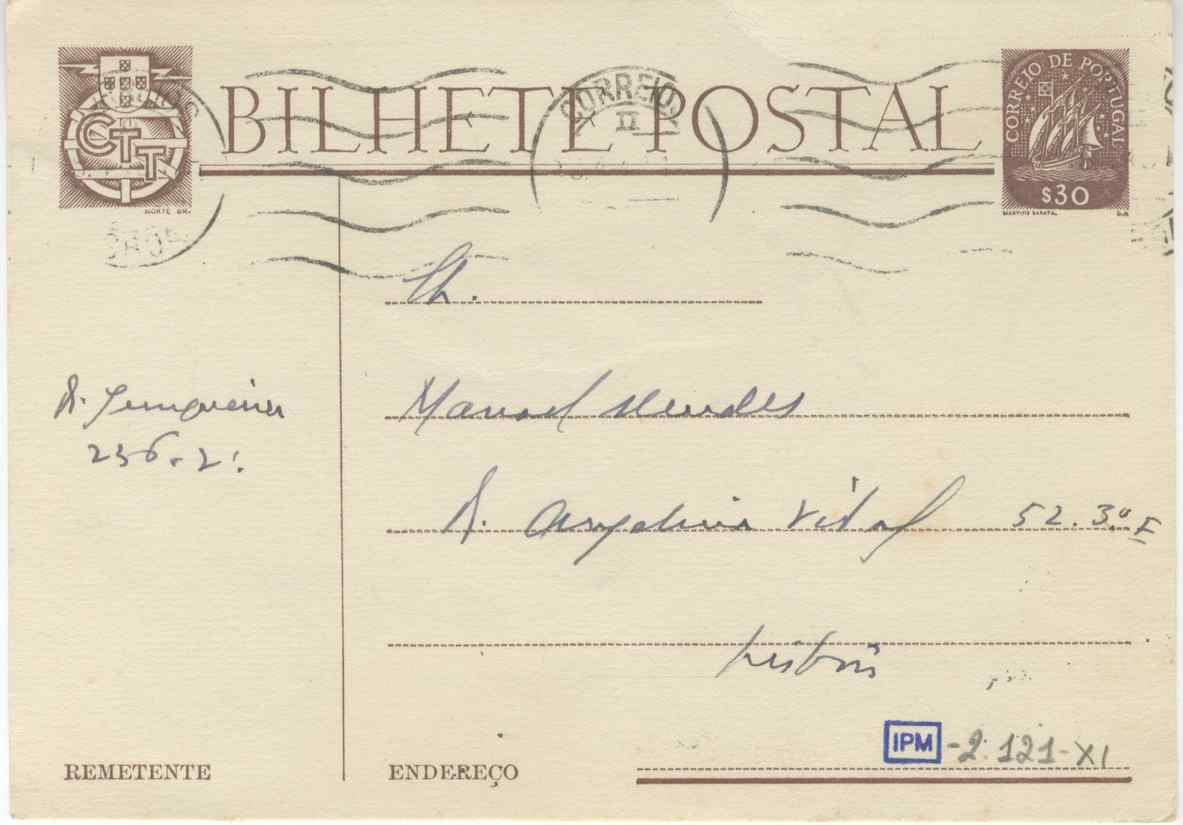 CTT
BILHETE POSTAL
CORREIO DE PORTUGAL
$30
NORTE GR.
MARTINS BARATA.
CORREIO
II
Manuel Mendes
R. Junqueira
236. 2º
R. Angelina Vidal 52. 3.º E
Lisboa
IPM -2.121-XI
REMETENTE
ENDEREÇO